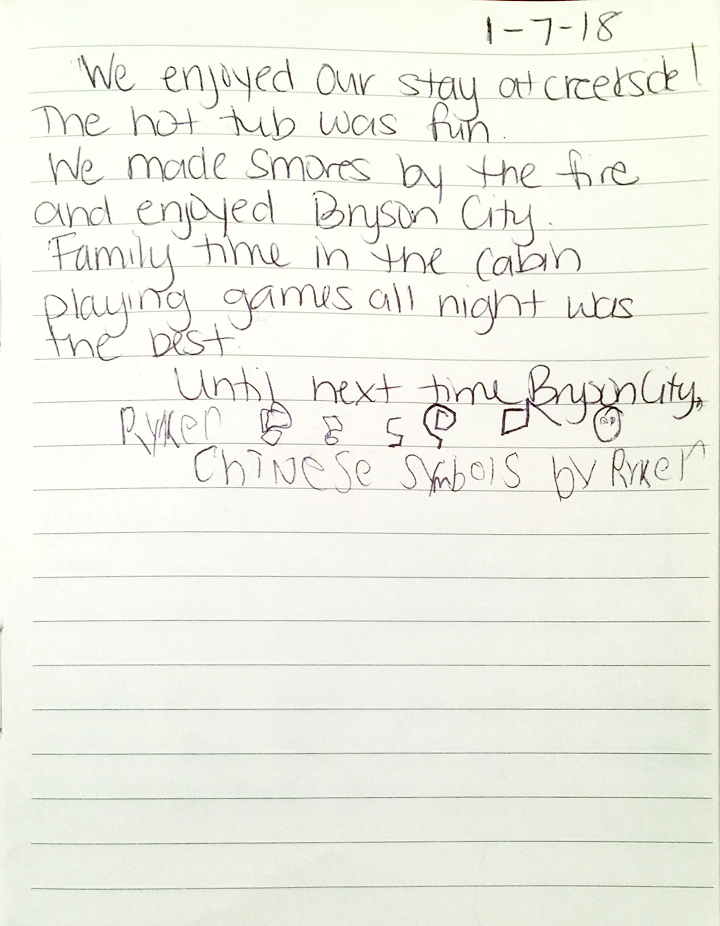 1-7-18
We enjoyed our stay at creekside!
The hot tub was fun.
We made Smores by the fire
and enjoyed Bryson City.
Family time in the cabin
playing games all night was
the best
Until next time Bryson City,
Ryker
Chinese Symbols by Ryker